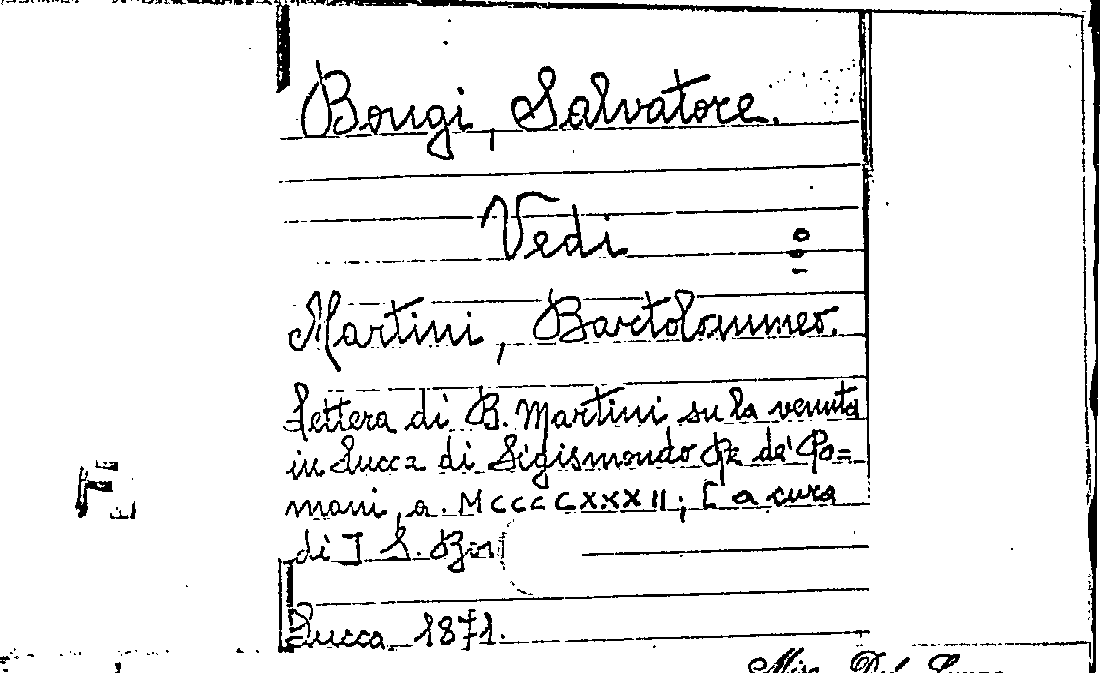 Bongi, Salvatore.
Vedi
Martini, Bartolommeo.
Lettera di B. Martini su la venuta
in Lucca di Sigismondo Re de' Ro=
mani, a. MCCCCXXXII; [a cura
di] S. Bon
Lucca, 1871.
F.
Misc. Del